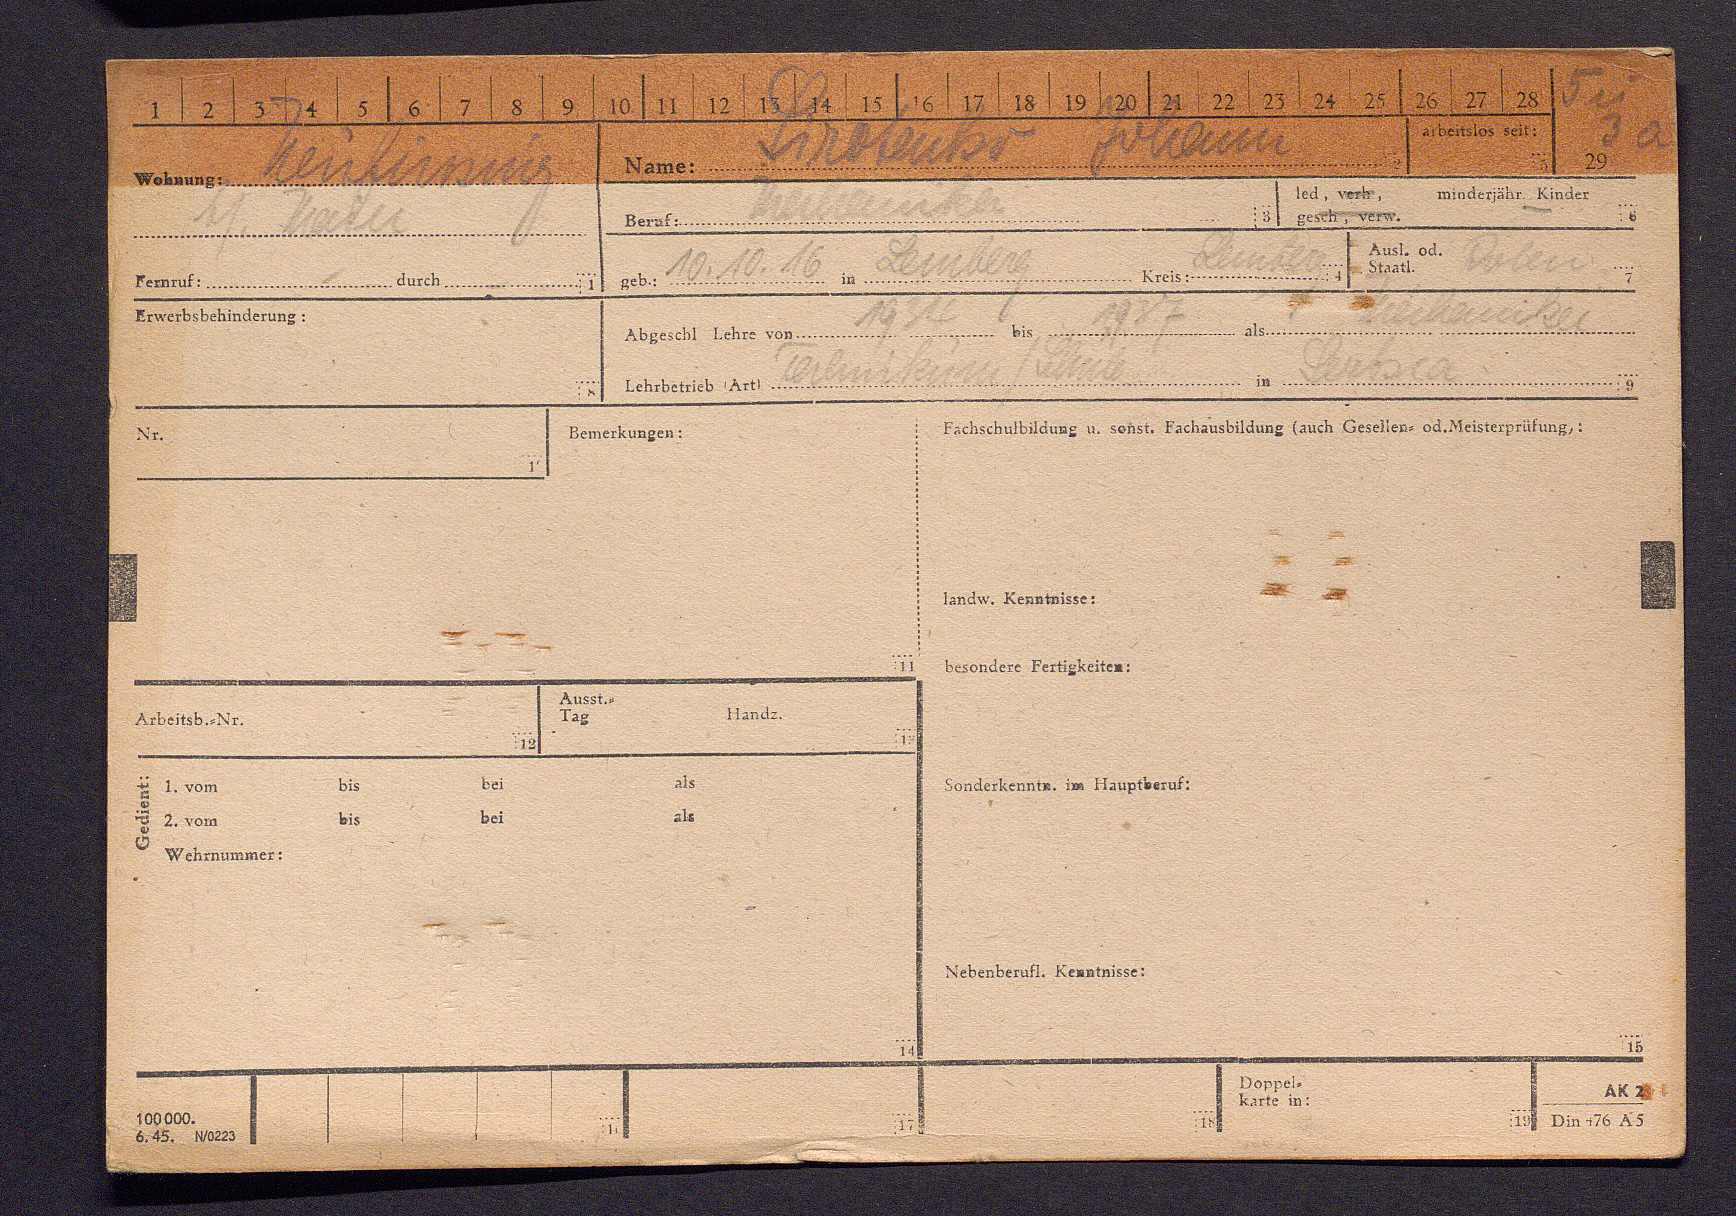 1 2 3 4 5 6 7 8 9 10 11 12 13 14 15 16 17 18 19 20 21 22 23 24 25 26 27 28
29
3 a
arbeitslos seit: 5
Wohnung:
Name: Sirotenko Johann 2
Beruf: Mechaniker 3
led, verh, minderjähr. Kinder —
gesch, verw. 6
Fernruf: — durch — 1
geb.: 10.10.16 in Lemberg Kreis: Lemberg 4
Ausl. od. Staatl. Polen 7
Erwerbsbehinderung: 8
Abgeschl Lehre von 1934 bis 1937 als Mechaniker
Lehrbetrieb (Art) Technikum / Schule in 9
Nr.
Bemerkungen: 11
Fachschulbildung u. sonst. Fachausbildung (auch Gesellen= od.Meisterprüfung,:
landw. Kenntnisse:
besondere Fertigkeiten:
Arbeitsb.=Nr. 12
Ausst.=
Tag Handz.
Sonderkenntn. im Hauptberuf:
Gedient:
1. vom bis bei als
2. vom bis bei als
Wehrnummer:
14
Nebenberufl. Kenntnisse:
15
100000.
6.45. N/0223
17
18
Doppel=
karte in: 19
AK 2
Din 476 A5